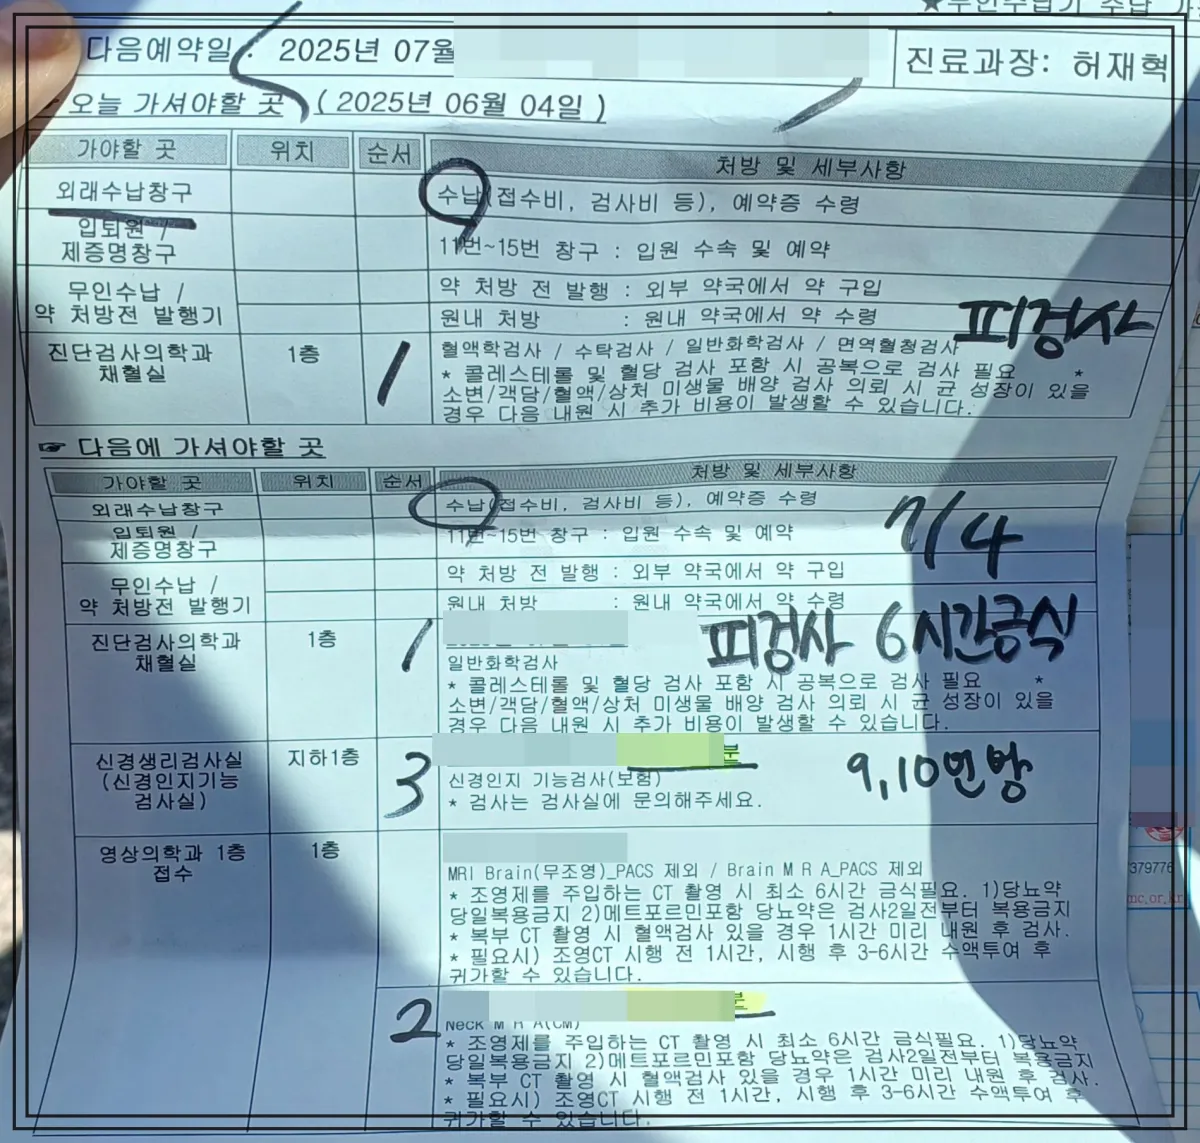 다음예약일 : 2025년 07월
진료과장: 허재혁
오늘 가셔야할 곳 ( 2025년 06월 04일 )
가야할 곳 위치 순서 처방 및 세부사항
외래수납창구 수납(접수비, 검사비 등), 예약증 수령
입퇴원 /
제증명창구 11번~15번 창구 : 입원 수속 및 예약
무인수납 / 약 처방 전 발행 : 외부 약국에서 약 구입
약 처방전 발행기 원내 처방 : 원내 약국에서 약 수령
피검사
진단검사의학과 1층 1 혈액학검사 / 수탁검사 / 일반화학검사 / 면역혈청검사
채혈실 * 콜레스테롤 및 혈당 검사 포함 시 공복으로 검사 필요 *
소변/객담/혈액/상처 미생물 배양 검사 의뢰 시 균 성장이 있을
경우 다음 내원 시 추가 비용이 발생할 수 있습니다.
☞ 다음에 가셔야할 곳
가야할 곳 위치 순서 처방 및 세부사항
외래수납창구 수납(접수비, 검사비 등), 예약증 수령
7/4
입퇴원 /
제증명창구 11번~15번 창구 : 입원 수속 및 예약
무인수납 / 약 처방 전 발행 : 외부 약국에서 약 구입
약 처방전 발행기 원내 처방 : 원내 약국에서 약 수령
진단검사의학과 1층 1 피검사 6시간금식
채혈실 일반화학검사
* 콜레스테롤 및 혈당 검사 포함 시 공복으로 검사 필요 *
소변/객담/혈액/상처 미생물 배양 검사 의뢰 시 균 성장이 있을
경우 다음 내원 시 추가 비용이 발생할 수 있습니다.
신경생리검사실 지하1층 3 분
(신경인지기능 신경인지 기능검사(보험) 9,10번방
검사실) * 검사는 검사실에 문의해주세요.
영상의학과 1층 1층
접수
MRI Brain(무조영)_PACS 제외 / Brain M R A_PACS 제외
* 조영제를 주입하는 CT 촬영 시 최소 6시간 금식필요. 1)당뇨약
당일복용금지 2)메트포르민포함 당뇨약은 검사2일전부터 복용금지
* 복부 CT 촬영 시 혈액검사 있을 경우 1시간 미리 내원 후 검사.
* 필요시) 조영CT 시행 전 1시간, 시행 후 3-6시간 수액투여 후
귀가할 수 있습니다.
2 분
Neck M R A(CM)
* 조영제를 주입하는 CT 촬영 시 최소 6시간 금식필요. 1)당뇨약
당일복용금지 2)메트포르민포함 당뇨약은 검사2일전부터 복용금지
* 복부 CT 촬영 시 혈액검사 있을 경우 1시간 미리 내원 후 검사.
* 필요시) 조영CT 시행 전 1시간, 시행 후 3-6시간 수액투여 후
귀가할 수 있습니다.
379776
mc.or.kr